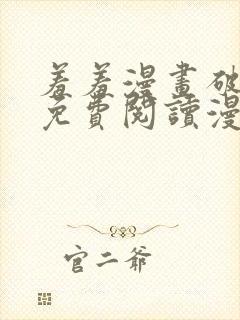 羞羞漫畫破
免費閱讀漫
官二爺